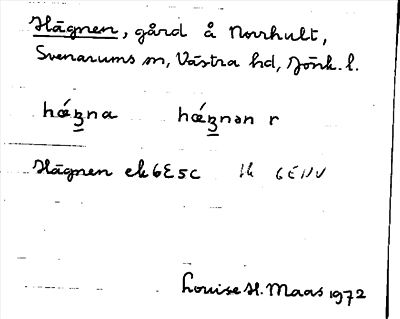 Hägnen, gård å Norrhult,
Svenarums sn, Västra hd, Jönk. l.
hǽŋna hǽŋnən r
Hägnen ek 6E5c
Louise H. Maas 1972